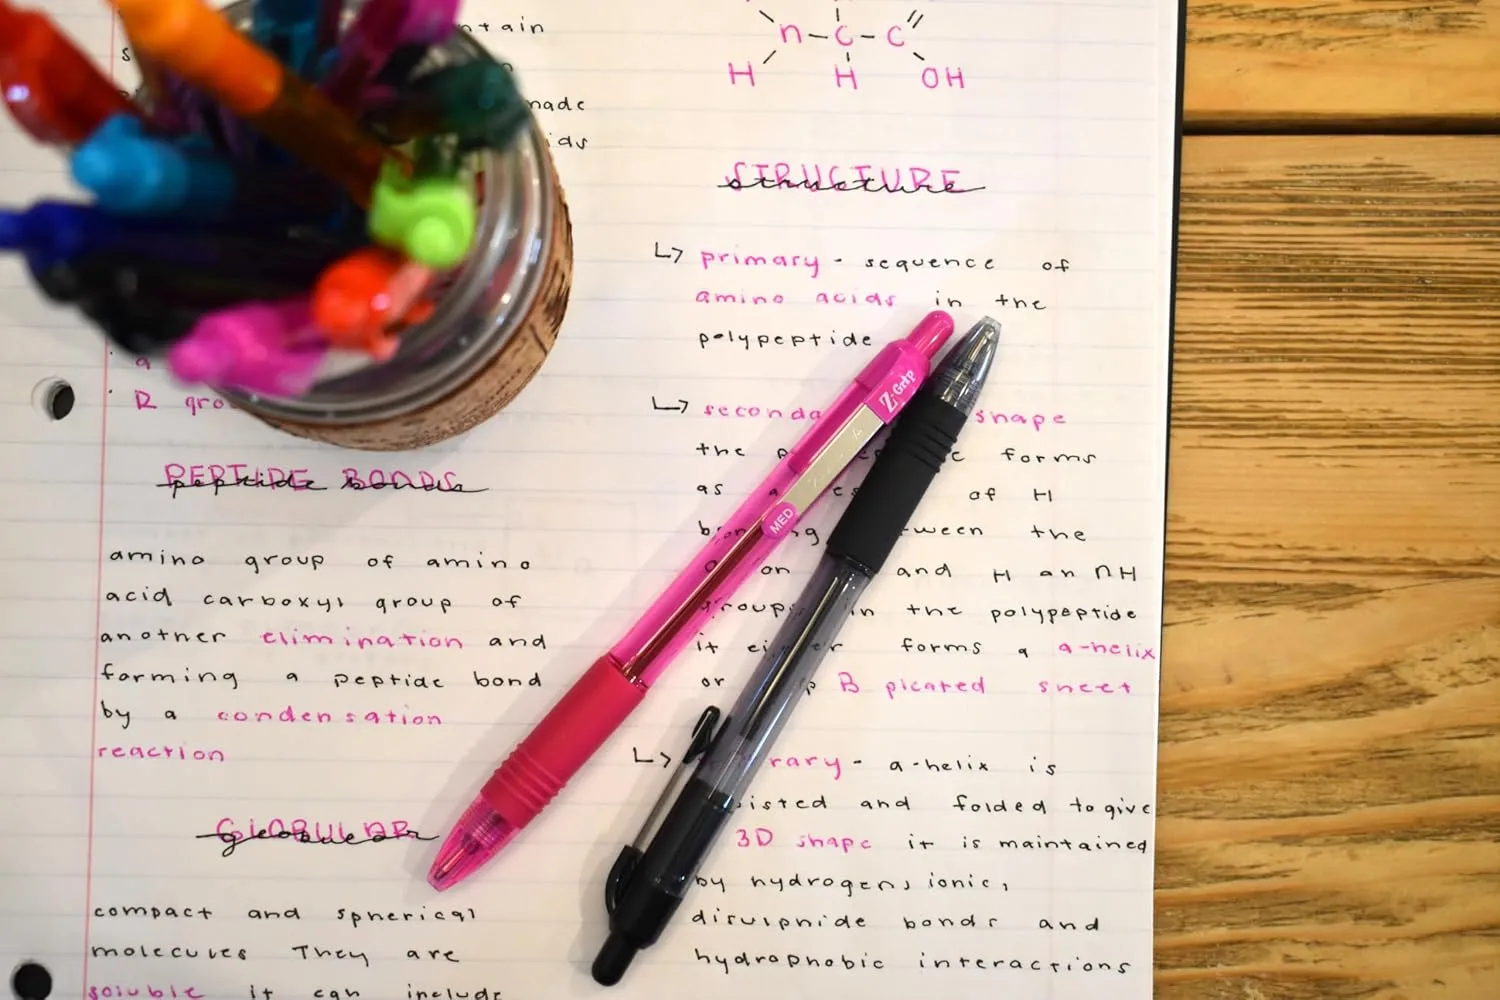 ntain
nade
ids
a
R gro
PEPTIDE BONDS
peptide bonds
amino group of amino
acid carboxyl group of
another elimination and
forming a peptide bond
by a condensation
reaction
GLOBULAR
globular
compact and spherical
molecules They are
soluble it can include
n-C-C
H H OH
STRUCTURE
structure
↳ primary - sequence of
amino acids in the
polypeptide
↳ seconda shape
the forms
as a of H
between the
on and H an NH
groups in the polypeptide
it either forms a a-helix
or B pleated sheet
↳ rary - a-helix is
isted and folded to give
3D shape it is maintained
by hydrogen, ionic,
disulphide bonds and
hydrophobic interactions
Z-Grip
MED